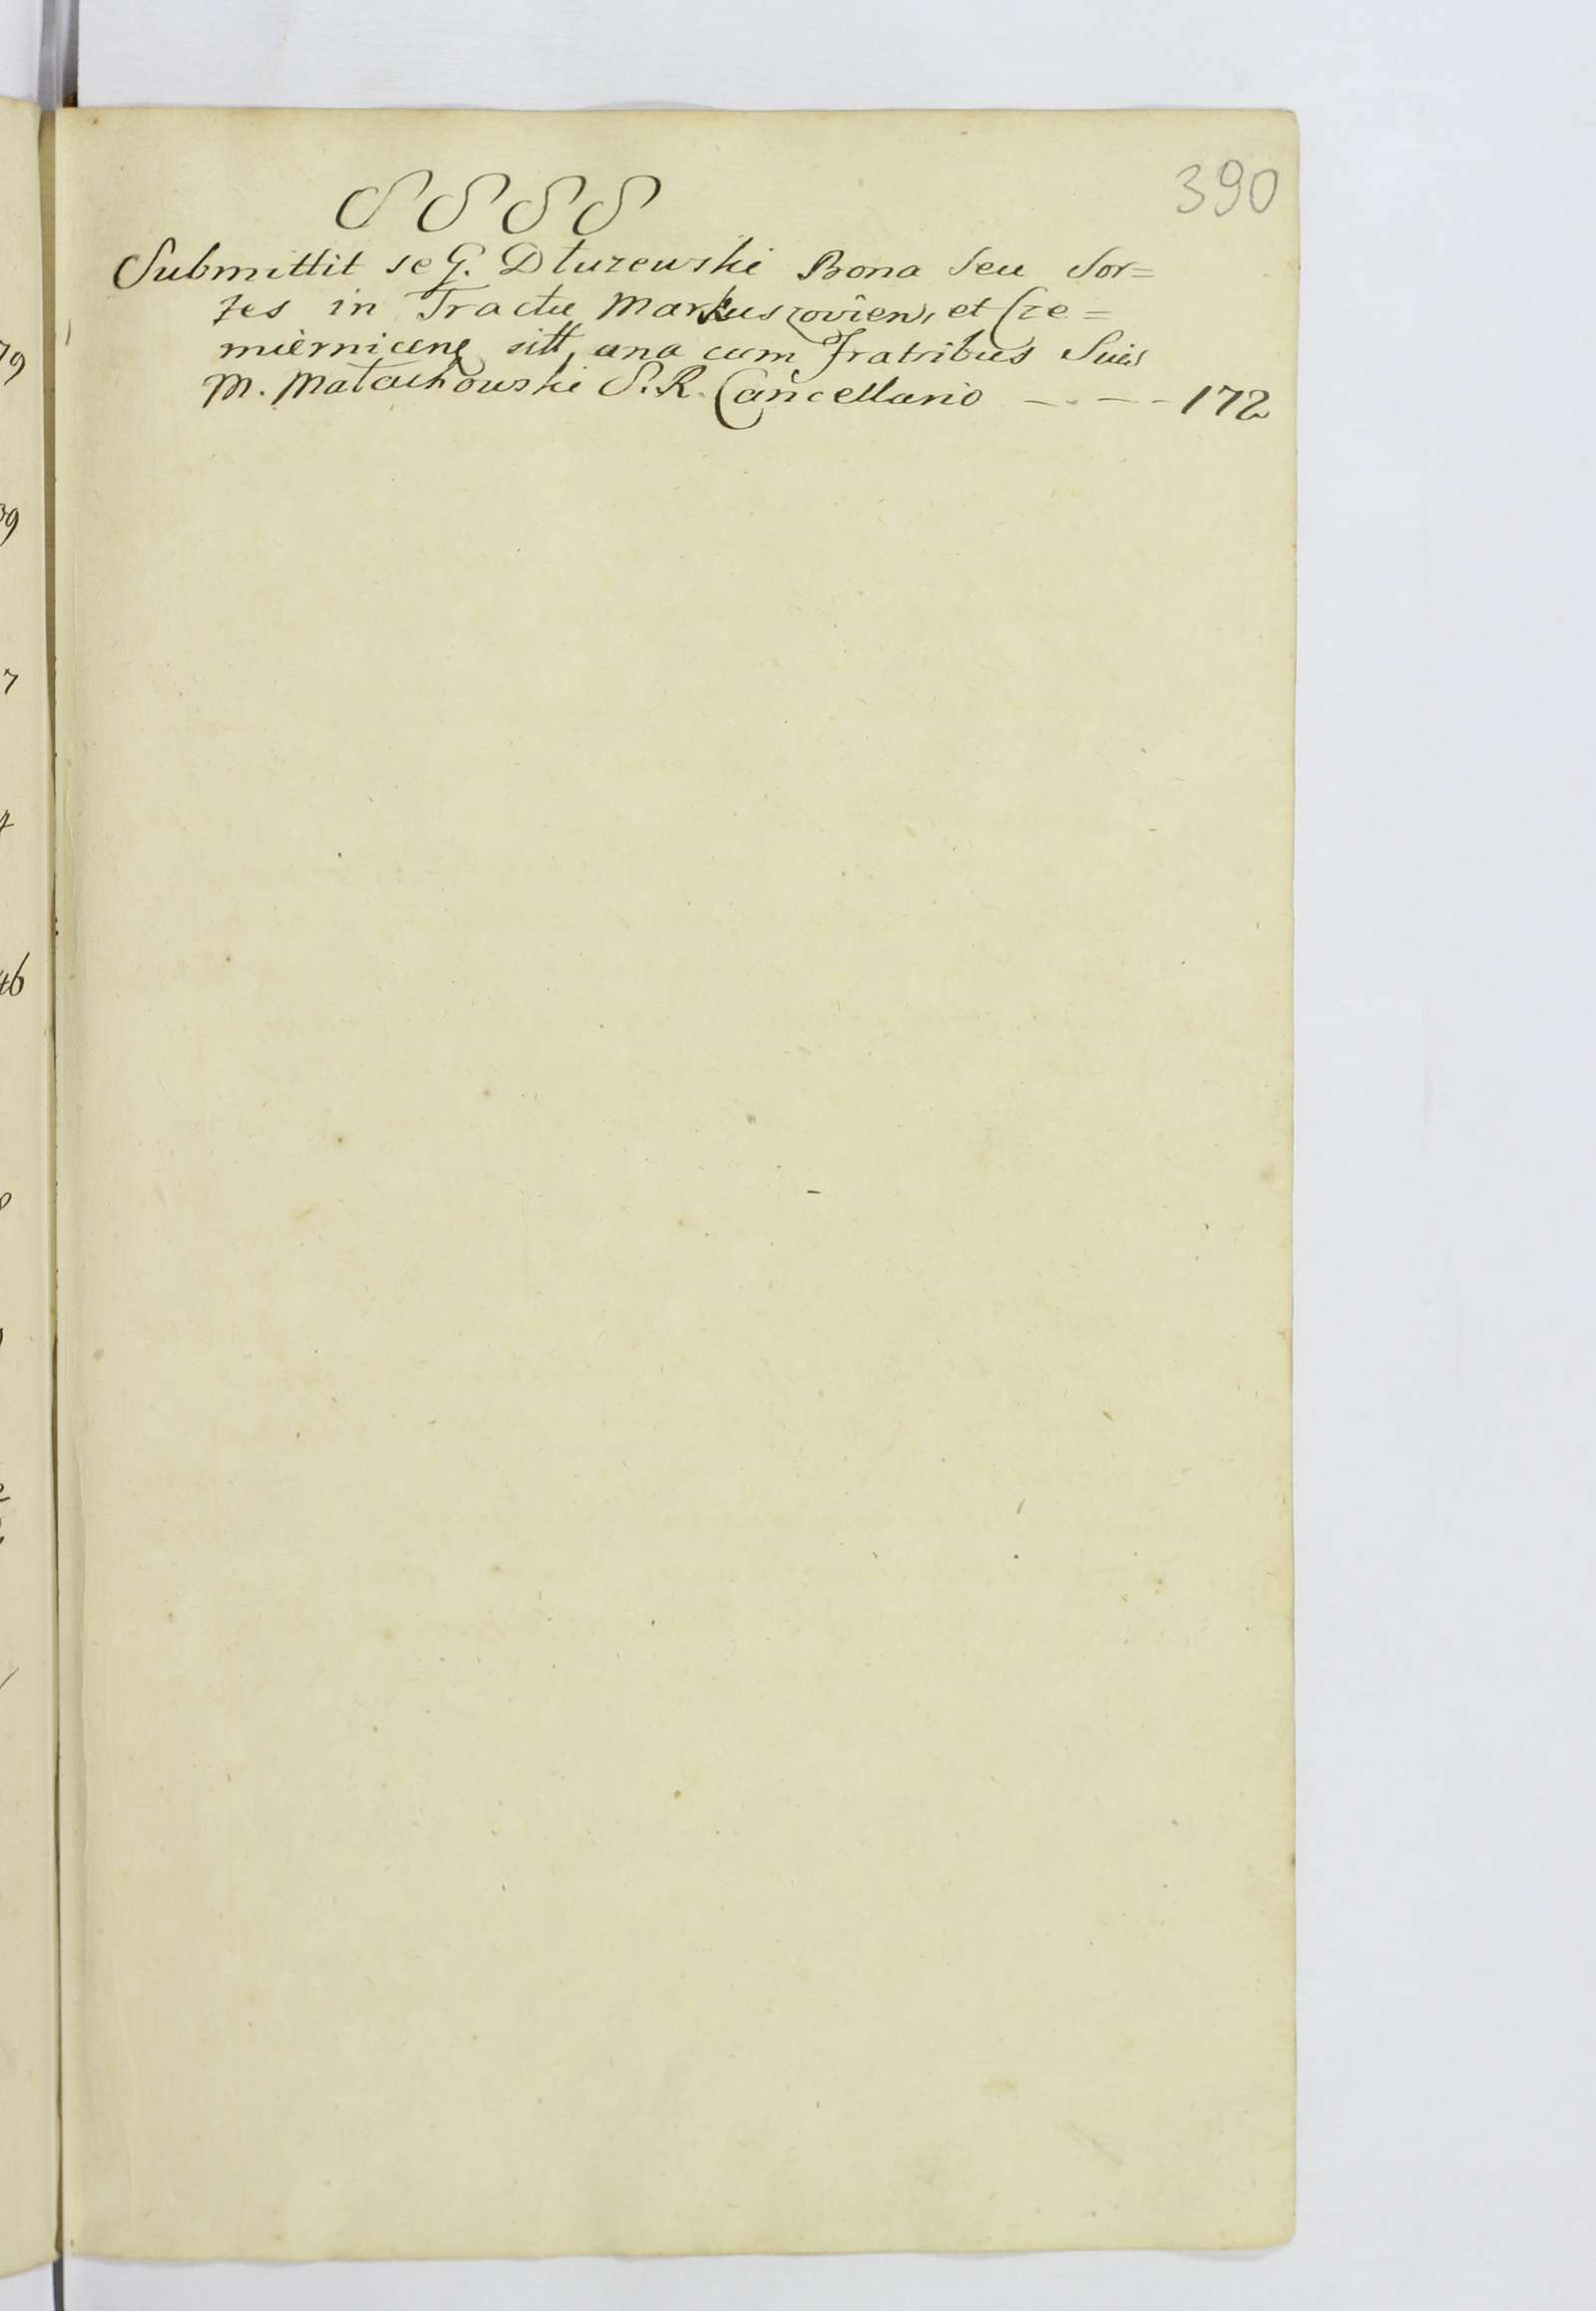 390
S S S S
Submittit se G. Dłuzewski Bona seu Sor=
tes in Tractu Markuszovien, et Cze=
miernicen sitt, una cum Fratribus Suis
M. Małachowski S. R. Cancellario - - - - 172
79
39
7
46